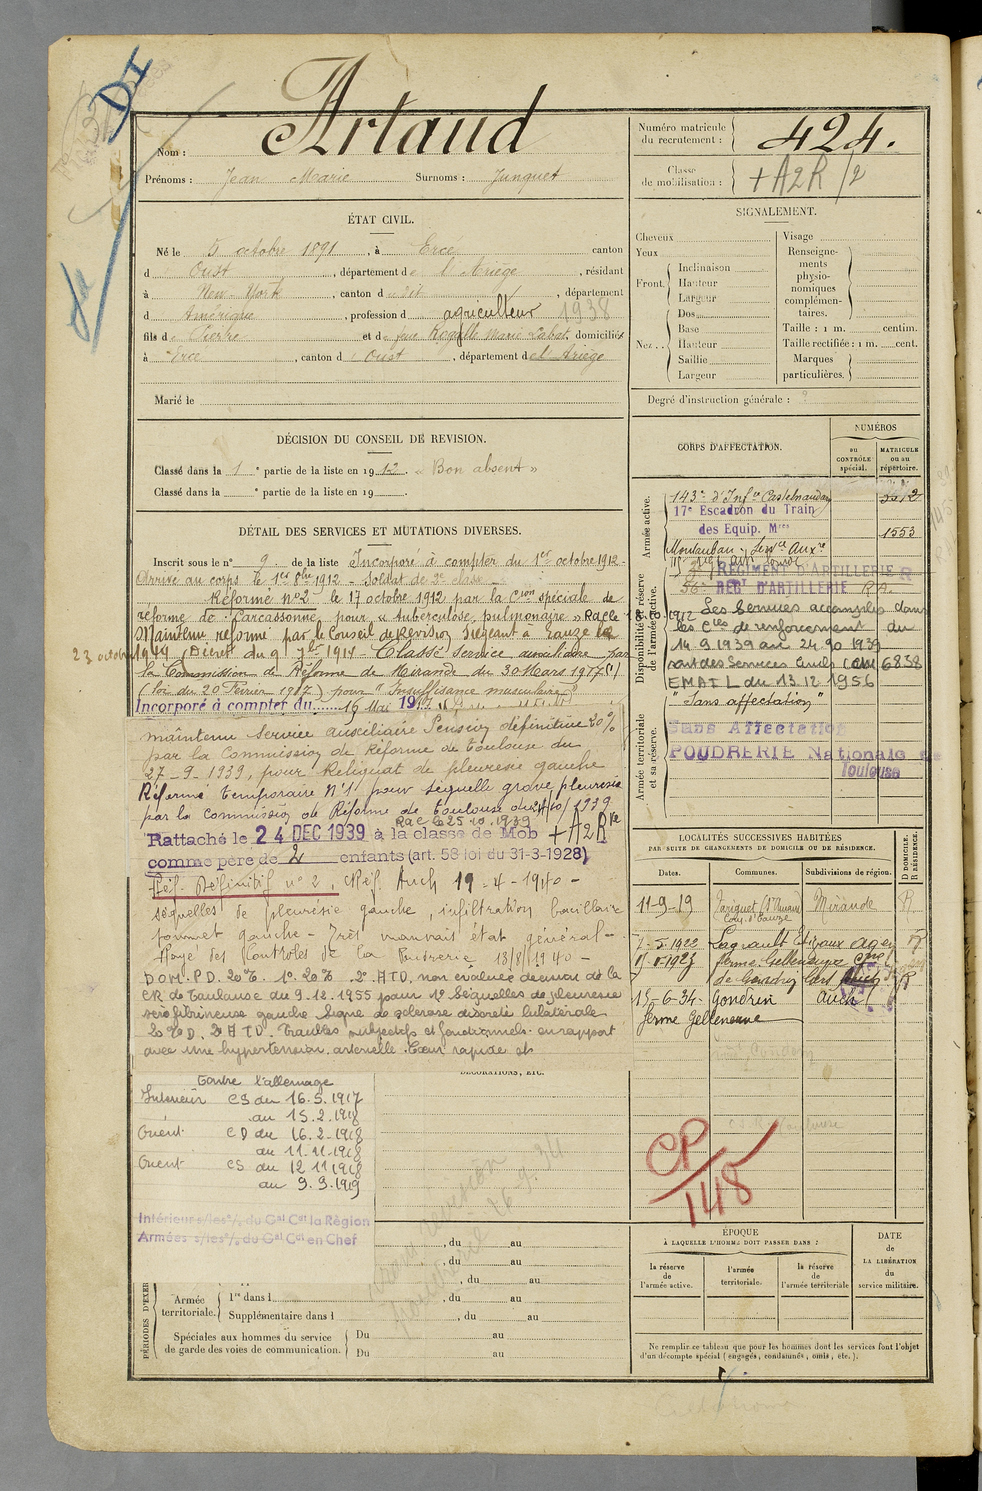 DI
Nom : Artaud
Prénoms : Jean Marie Surnoms : Junquet
ÉTAT CIVIL.
Né le 5 octobre 1891, à Erce canton
d Oust, département de l'Ariège, résidant
à New-York, canton d dit, département
d Amérique, profession d agriculteur 1938
fils de Pierre et de feue Rogalle Marie Labat, domiciliés
à Erce, canton d Oust, département de l'Ariège
Marié le
DÉCISION DU CONSEIL DE REVISION.
Classé dans la 1e partie de la liste en 1912. « Bon absent »
Classé dans la e partie de la liste en 19
DÉTAIL DES SERVICES ET MUTATIONS DIVERSES.
Inscrit sous le n° 9 de la liste Incorporé à compter du 1er octobre 1912
Arrivé au corps le 1er 8bre 1912 - Soldat de 2e classe
Réformé N° 2 le 17 octobre 1912 par la Cion spéciale de
réforme de Carcassonne pour « tuberculose pulmonaire »
Maintenu réformé par le Conseil de Révision siégeant à Eauze le
23 octobre 1914 (Décret du 9 7bre 1914 - Classé Service auxiliaire par
la Commission de Réforme de Mirande du 30 Mars 1917
(loi du 20 Février 1917) pour "Insuffisance musculaire"
Incorporé à compter du 16 Mai 1917
maintenu Service auxiliaire Pension définitive 20%
par la Commission de Réforme de Toulouse du
27-9-1939, pour Reliquat de pleuresie gauche
Réformé temporaire N°1 pour séquelle grave pleuresie
par la Commission de Réforme de Toulouse du 24/10/1939
Rac le 25 10 1939
Rattaché le 24 DEC 1939 à la classe de Mob + A2R
comme père de 2 enfants (art. 58 loi du 31-3-1928)
Réf. Définitif n° 2, CRéf. Auch 19-4-1940 -
séquelles de pleurésie gauche, infiltration bacillaire
sommet gauche - Très mauvais état général -
Rayé des Contrôles de la Poudrerie 18/8/1940 -
DOM. P.D. 20%. 1°. 20%. 2° ATD. non évaluée décision de la
CR de Toulouse du 9.12.1955 pour 1° Séquelles de pleuresie
séro fibrineuse gauche Signe de sclerose discrète bilatérale
20% D. 2° ATD - Troubles subjectifs et fonctionnels en rapport
avec une hypertension arterielle. Cœur rapide et
Contre l'allemage
Intérieur CS du 16.5.1917
au 15.2.1918
Orient CD du 16.2.1918
au 11.11.1918
Orient CS du 12 11 1918
au 9.9.1919
Intérieur s/les o/s du Gal Ct la Région
Armées s/les o/s du Gal Ct en Chef
DÉCORATIONS, ETC.
, du au
, du au
, du au
PÉRIODES D'EXER
Armée territoriale. 1re dans l , du au
Supplémentaire dans l , du au
Spéciales aux hommes du service de garde des voies de communication. Du au
Du au
Numéro matricule du recrutement : 424.
Classe de mobilisation : + A2R /2
SIGNALEMENT.
Cheveux
Yeux
Front. Inclinaison
Hauteur
Largeur
Nez. Dos
Base
Hauteur
Saillie
Largeur
Visage
Renseignements physionomiques complémentaires.
Taille : 1 m. centim.
Taille rectifiée : 1 m. cent.
Marques particulières.
Degré d'instruction générale :
CORPS D'AFFECTATION.
NUMÉROS
AU CONTRÔLE spécial.
MATRICULE ou au répertoire.
Armée active.
143e d'Infie Castelnaudary
17e Escadron du Train
des Equip. Mres 1553
Montauban - Servce Auxre
Disponibilité et réserve de l'armée active.
RÉGIMENT D'ARTILLERIE
56e REGT D'ARTILLERIE R.A.
Les Services accomplis dans
les Cies de renforcement du
14.9.1939 au 24.10 1939
sont des Services Civils 6838
EMAT L du 13.12.1956
"Sans affectation"
Armée territoriale et sa réserve.
Sans Affectation
POUDRERIE Nationale de
Toulouse
LOCALITÉS SUCCESSIVES HABITÉES
PAR SUITE DE CHANGEMENTS DE DOMICILE OU DE RÉSIDENCE.
Dates. Communes. Subdivisions de région. D DOMICILE. R RÉSIDENCE.
11-9-19 Mirande R
Con d'Eauze
1922 Agen R
1923 ferme Gelleneuve
de Gondrin
15-6-34- Gondrin Auch
ferme Gelleneuve
CP/148
ÉPOQUE
À LAQUELLE L'HOMME DOIT PASSER DANS :
la réserve de l'armée active.
l'armée territoriale.
la réserve de l'armée territoriale
DATE DE LA LIBÉRATION du service militaire.
Ne remplir ce tableau que pour les hommes dont les services font l'objet
d'un décompte spécial (engagés, condamnés, omis, etc.).